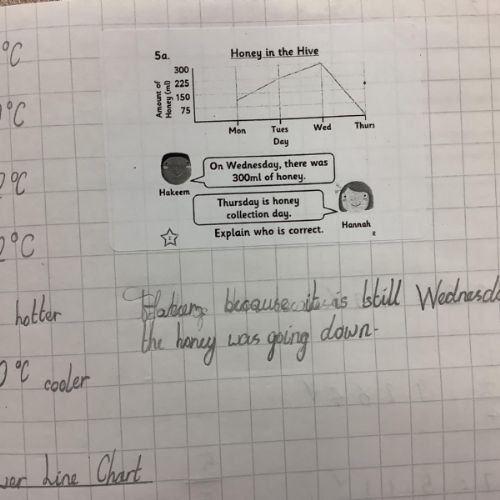 °C
5a.
Honey in the Hive
Amount of Honey (ml)
300
225
150
75
Mon Tues Wed Thurs
Day
0°C
On Wednesday, there was
300ml of honey.
Hakeem
2°C
Thursday is honey
collection day.
Hannah
Explain who is correct.
2°C
hotter
because it is still Wednesda
the honey was going down.
0°C cooler
Line Chart